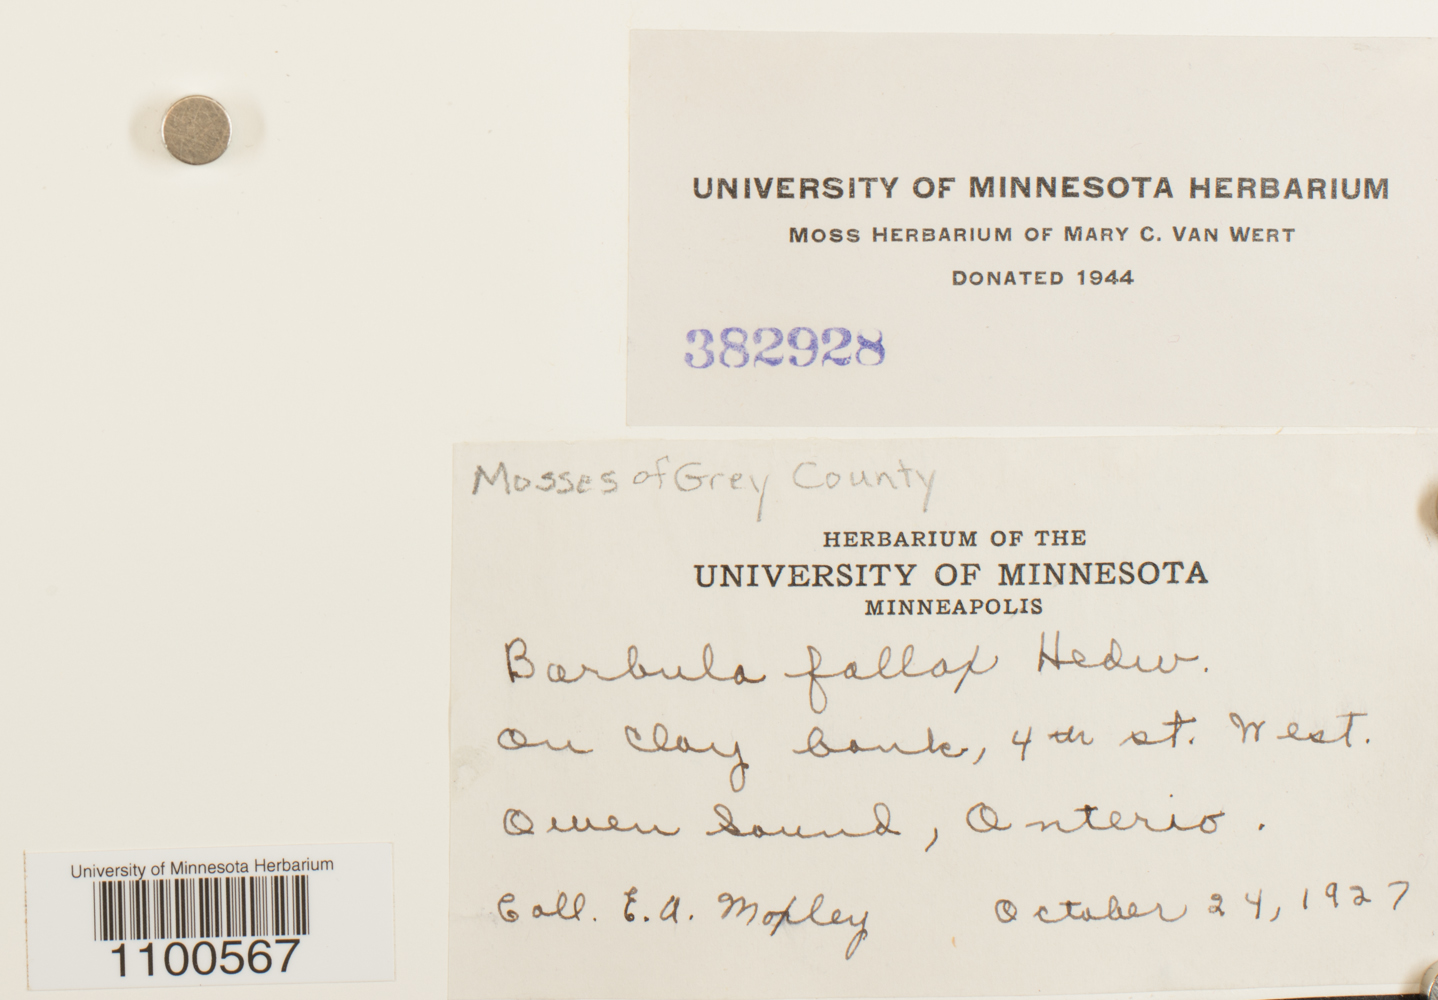 UNIVERSITY OF MINNESOTA HERBARIUM
MOSS HERBARIUM OF MARY C. VAN WERT
DONATED 1944
382928
Mosses of Grey County
HERBARIUM OF THE
UNIVERSITY OF MINNESOTA
MINNEAPOLIS
Barbula fallax Hedw.
On Clay bank, 4th st. West.
Owen Sound, Onterio.
Coll. E.A. Moxley October 24, 1927
University of Minnesota Herbarium
1100567